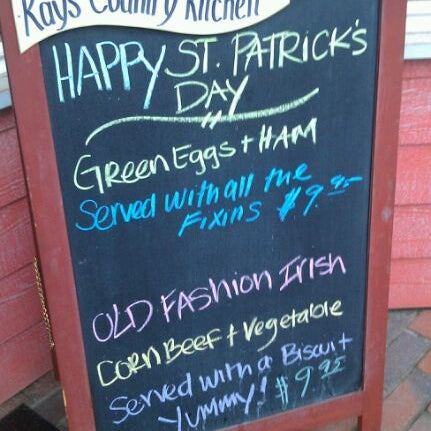 Kays Country Kitchen
HAPPY ST. PATRICK'S
DAY
GREEN EGGS + HAM
Served with all the
FIXINS $9.95
OLD FASHION IRISH
CORN BEEF + Vegetable
Served with a Biscuit
YUMMY! $9.95